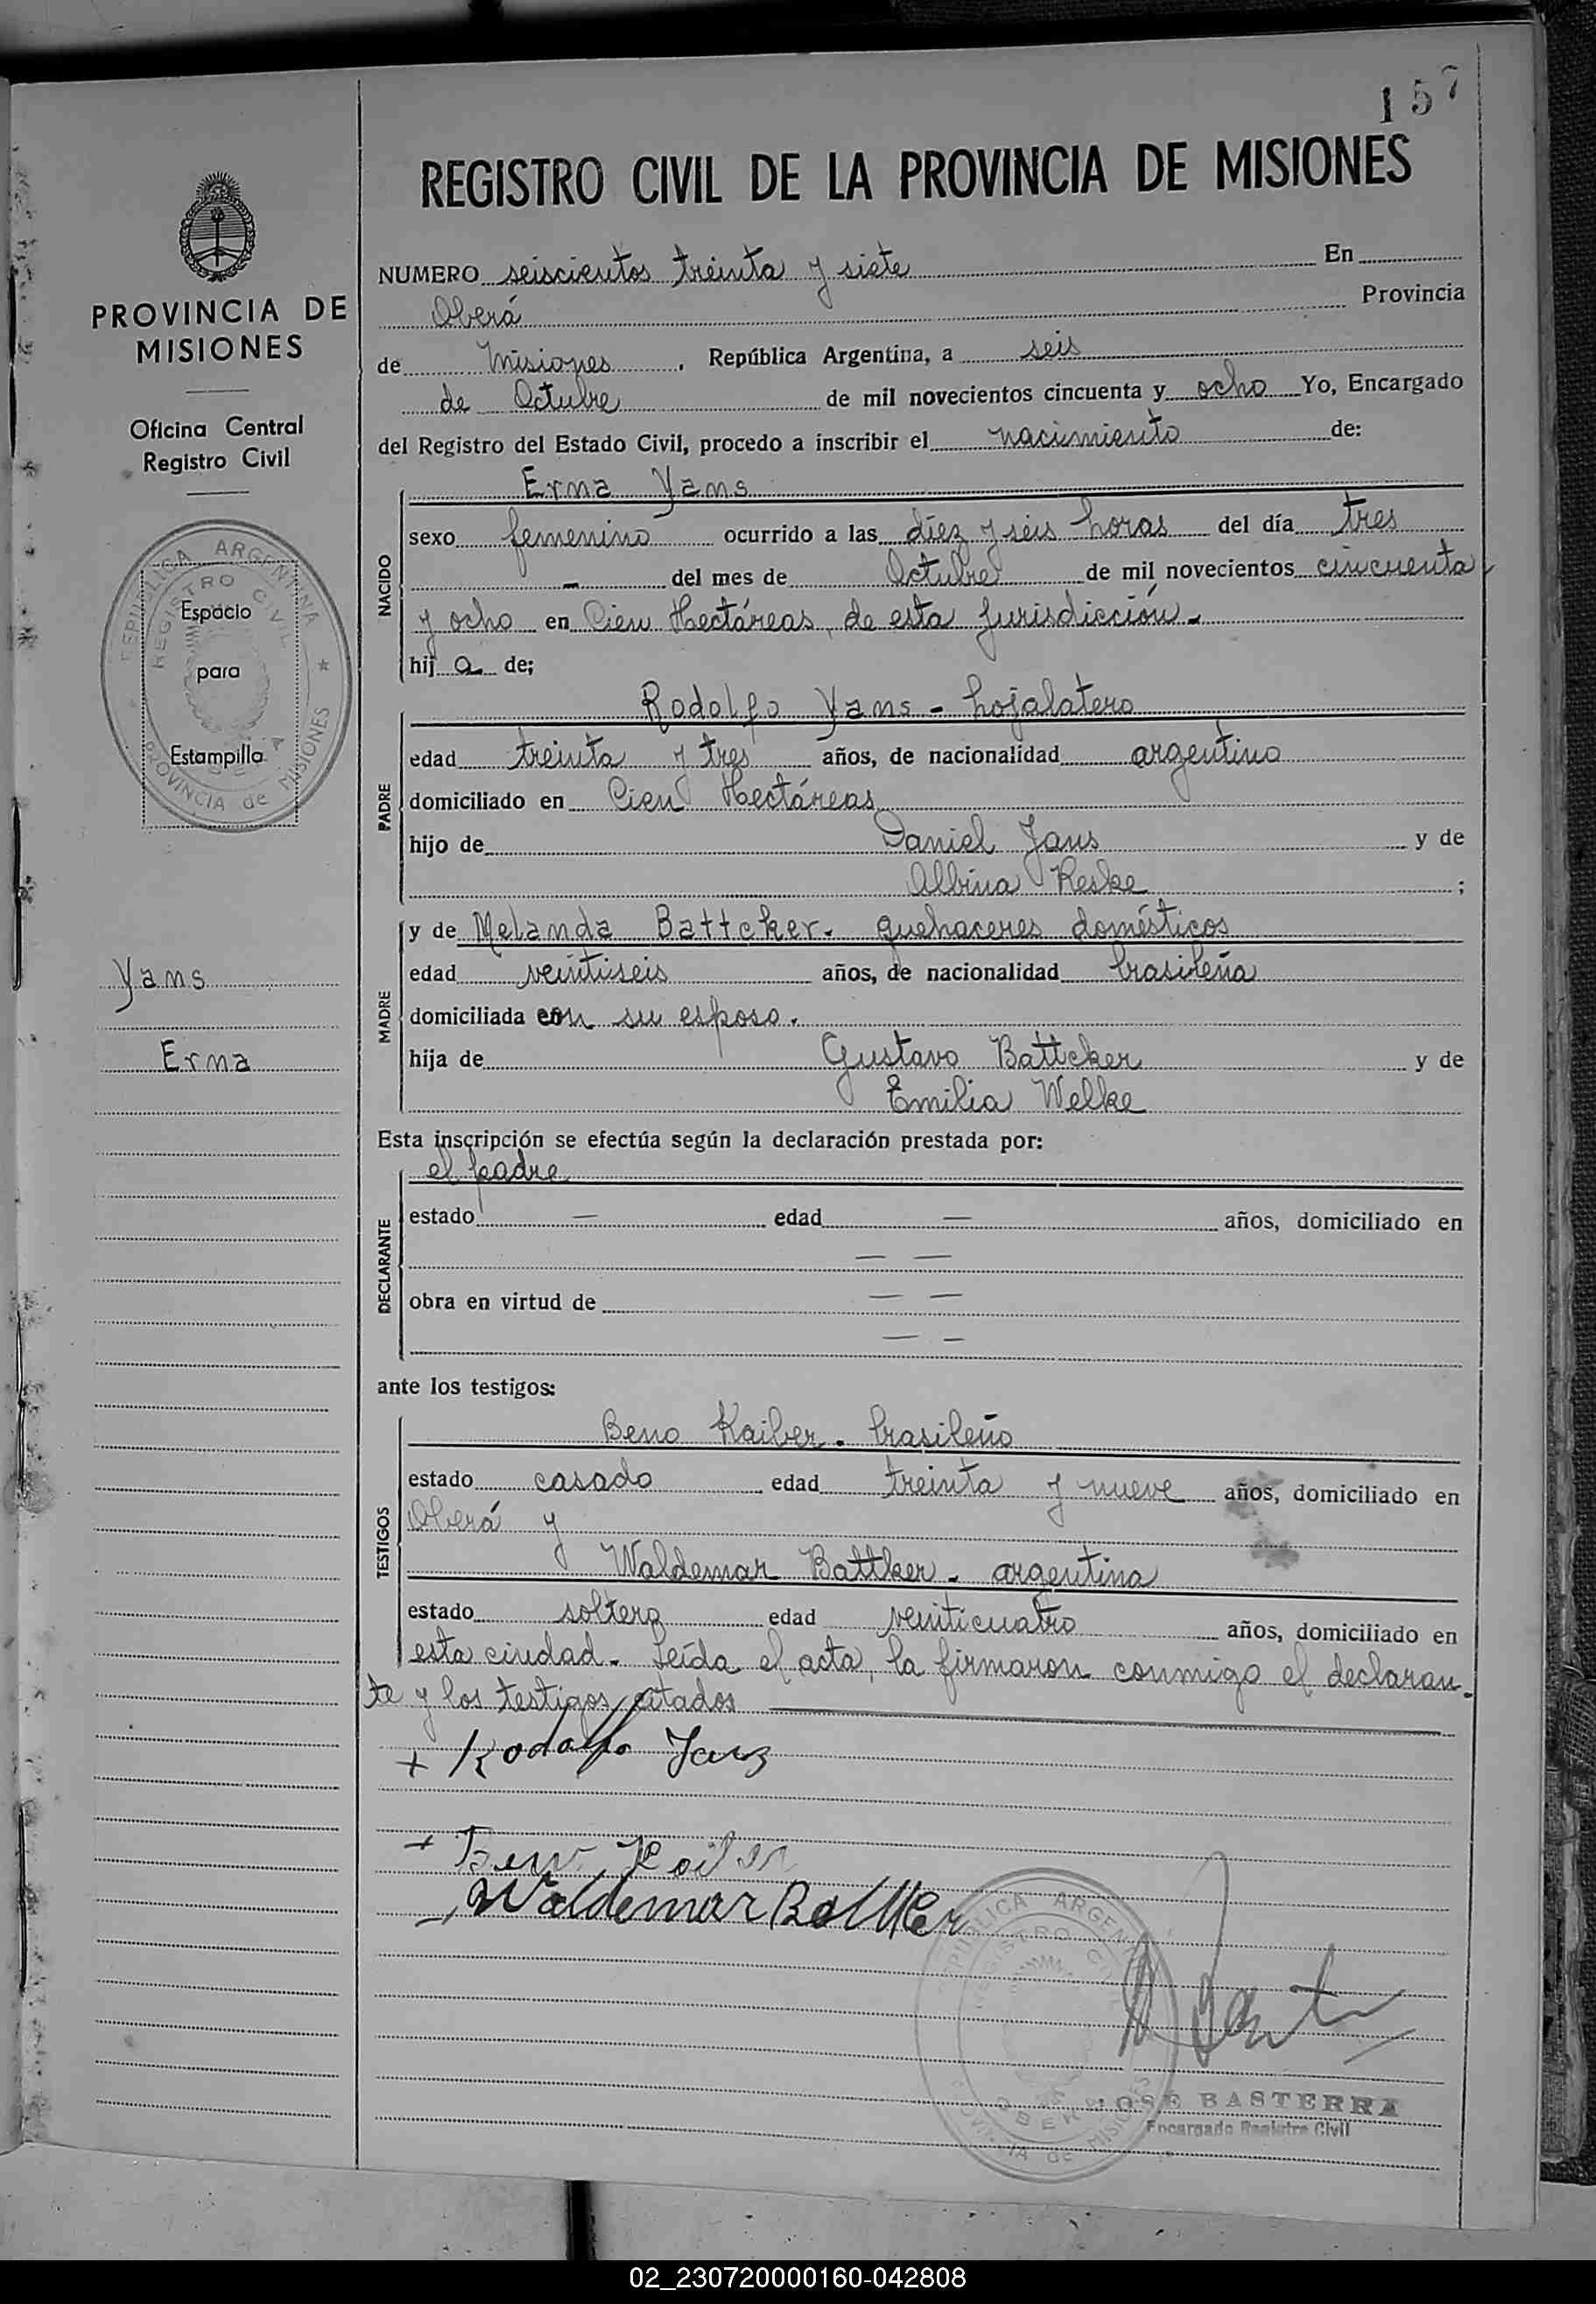 157
REGISTRO CIVIL DE LA PROVINCIA DE MISIONES
PROVINCIA DE
MISIONES
Oficina Central
Registro Civil
REPUBLICA ARGENTINA
REGISTRO CIVIL
PROVINCIA de MISIONES
Espacio
para
Estampilla
Yans
Erma
NUMERO seiscientos treinta y siete En
Oberá Provincia
de Misiones, República Argentina, a seis
de Octubre de mil novecientos cincuenta y ocho Yo, Encargado
del Registro del Estado Civil, procedo a inscribir el nacimiento de:
NACIDO
Erma Yans
sexo femenino ocurrido a las diez y seis horas del día tres
— del mes de Octubre de mil novecientos cincuenta
y ocho en Cien Hectáreas, de esta Jurisdicción.-
hij a de;
PADRE
Rodolfo Yans - hojalatero
edad treinta y tres años, de nacionalidad argentino
domiciliado en Cien Hectáreas
hijo de Daniel Jans y de
Albina Reske ;
MADRE
y de Melanda Battcker. quehaceres domésticos
edad veintiseis años, de nacionalidad brasileña
domiciliada con su esposo.
hija de Gustavo Battcker y de
Emilia Welke
Esta inscripción se efectúa según la declaración prestada por:
DECLARANTE
el padre
estado — edad — años, domiciliado en
— —
obra en virtud de — —
— —
ante los testigos:
TESTIGOS
Beno Kaiber. brasileño
estado casado edad treinta y nueve años, domiciliado en
Oberá y
Waldemar Battker - argentina
estado soltero edad veinticuatro años, domiciliado en
esta ciudad. Leída el acta, la firmaron conmigo el declaran-
te y los testigos citados
+ Rodolfo Jans
+ Beno Kaiber
Waldemar Battker
REPUBLICA ARGENTINA
REGISTRO CIVIL
OBERA
PROVINCIA de MISIONES
JOSE BASTERRA
Encargado Registro Civil
02_230720000160-042808